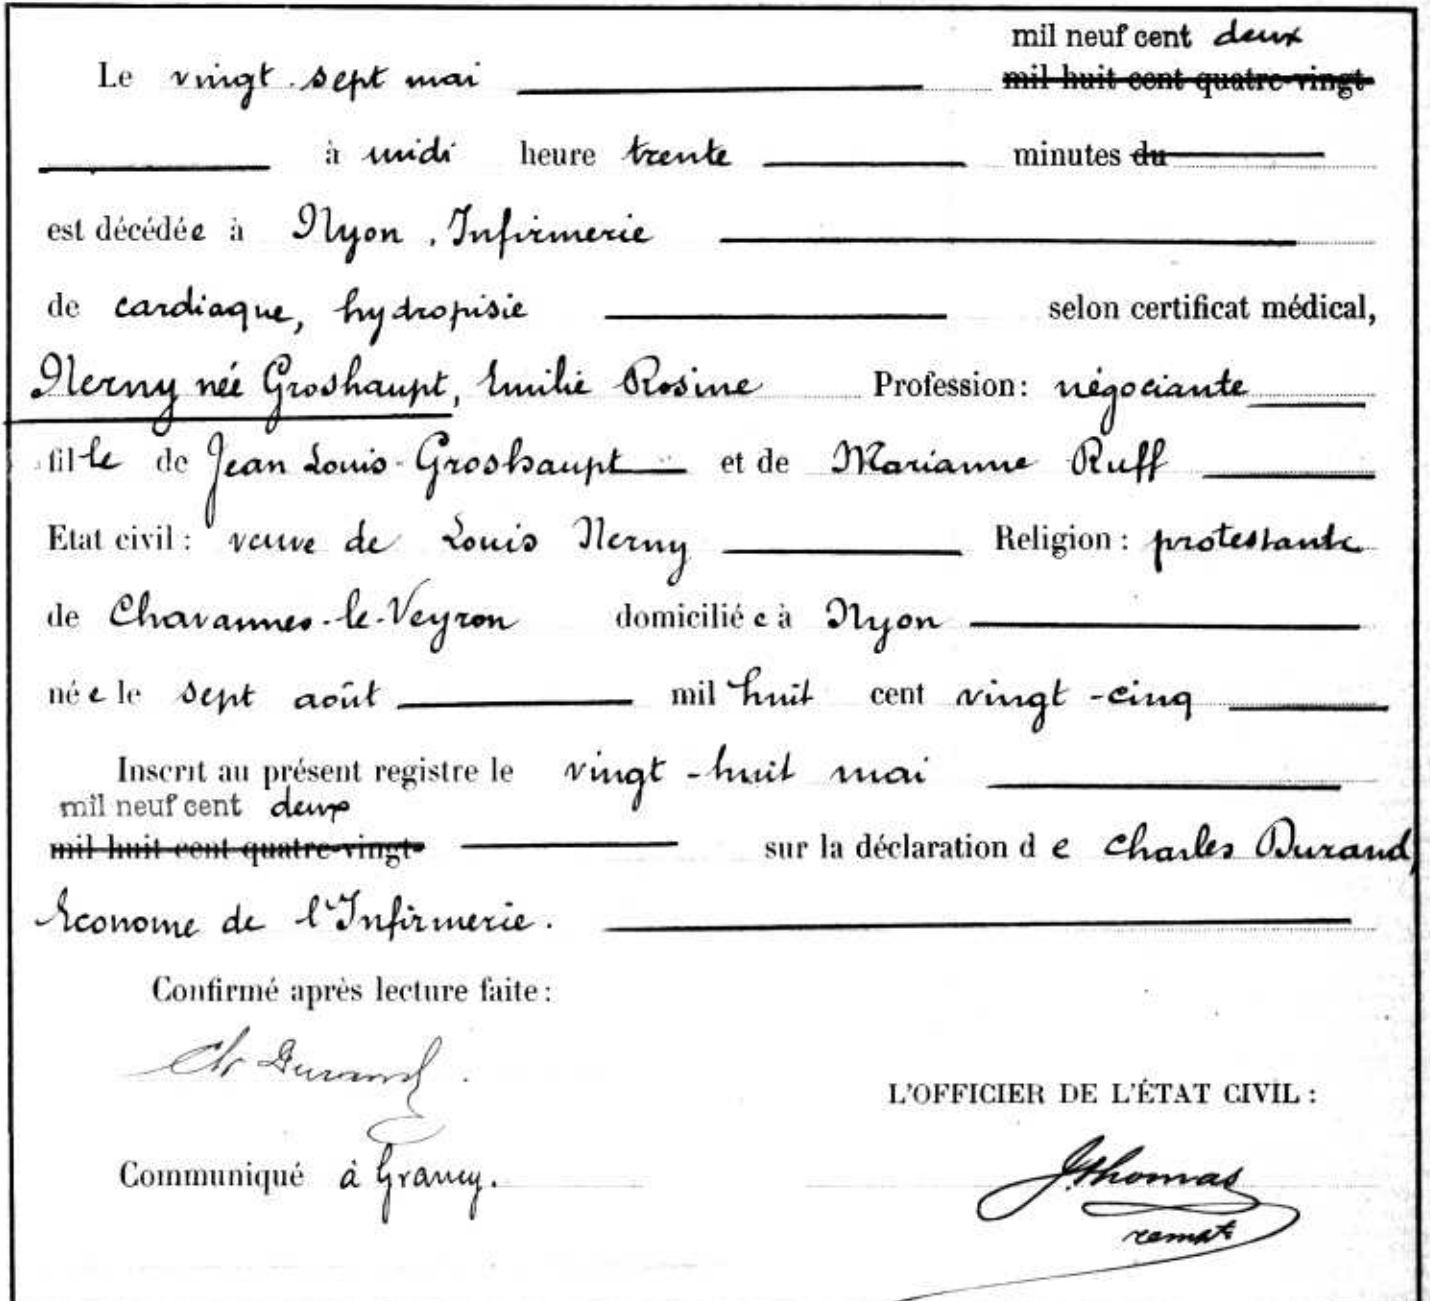 mil neuf cent deux
Le vingt-sept mai mil huit cent quatre-vingt
à midi heure trente minutes du
est décédée à Nyon, Infirmerie
de cardiaque, hydropisie selon certificat médical,
Nerny née Groshaupt, Emilie Rosine Profession: négociante
fille de Jean Louis Groshaupt et de Marianne Ruff
Etat civil: veuve de Louis Nerny Religion: protestante
de Chavannes-le-Veyron domiciliée à Nyon
née le sept août mil huit cent vingt-cinq
Inscrit au présent registre le vingt-huit mai
mil neuf cent deux
mil huit cent quatre-vingt- sur la déclaration de Charles Durand,
Econome de l'Infirmerie.
Confirmé après lecture faite:
Ch Durand.
L'OFFICIER DE L'ÉTAT CIVIL:
Communiqué à Grancy.
J. Thomas